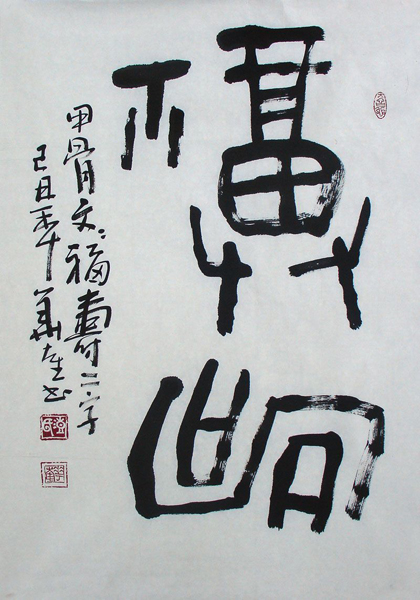 福
壽
甲骨文：福壽二字
己丑年華书